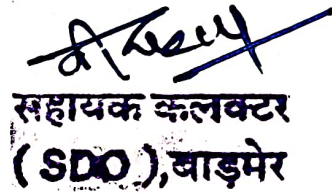 सहायक कलक्टर
( SDO ), बाड़मेर